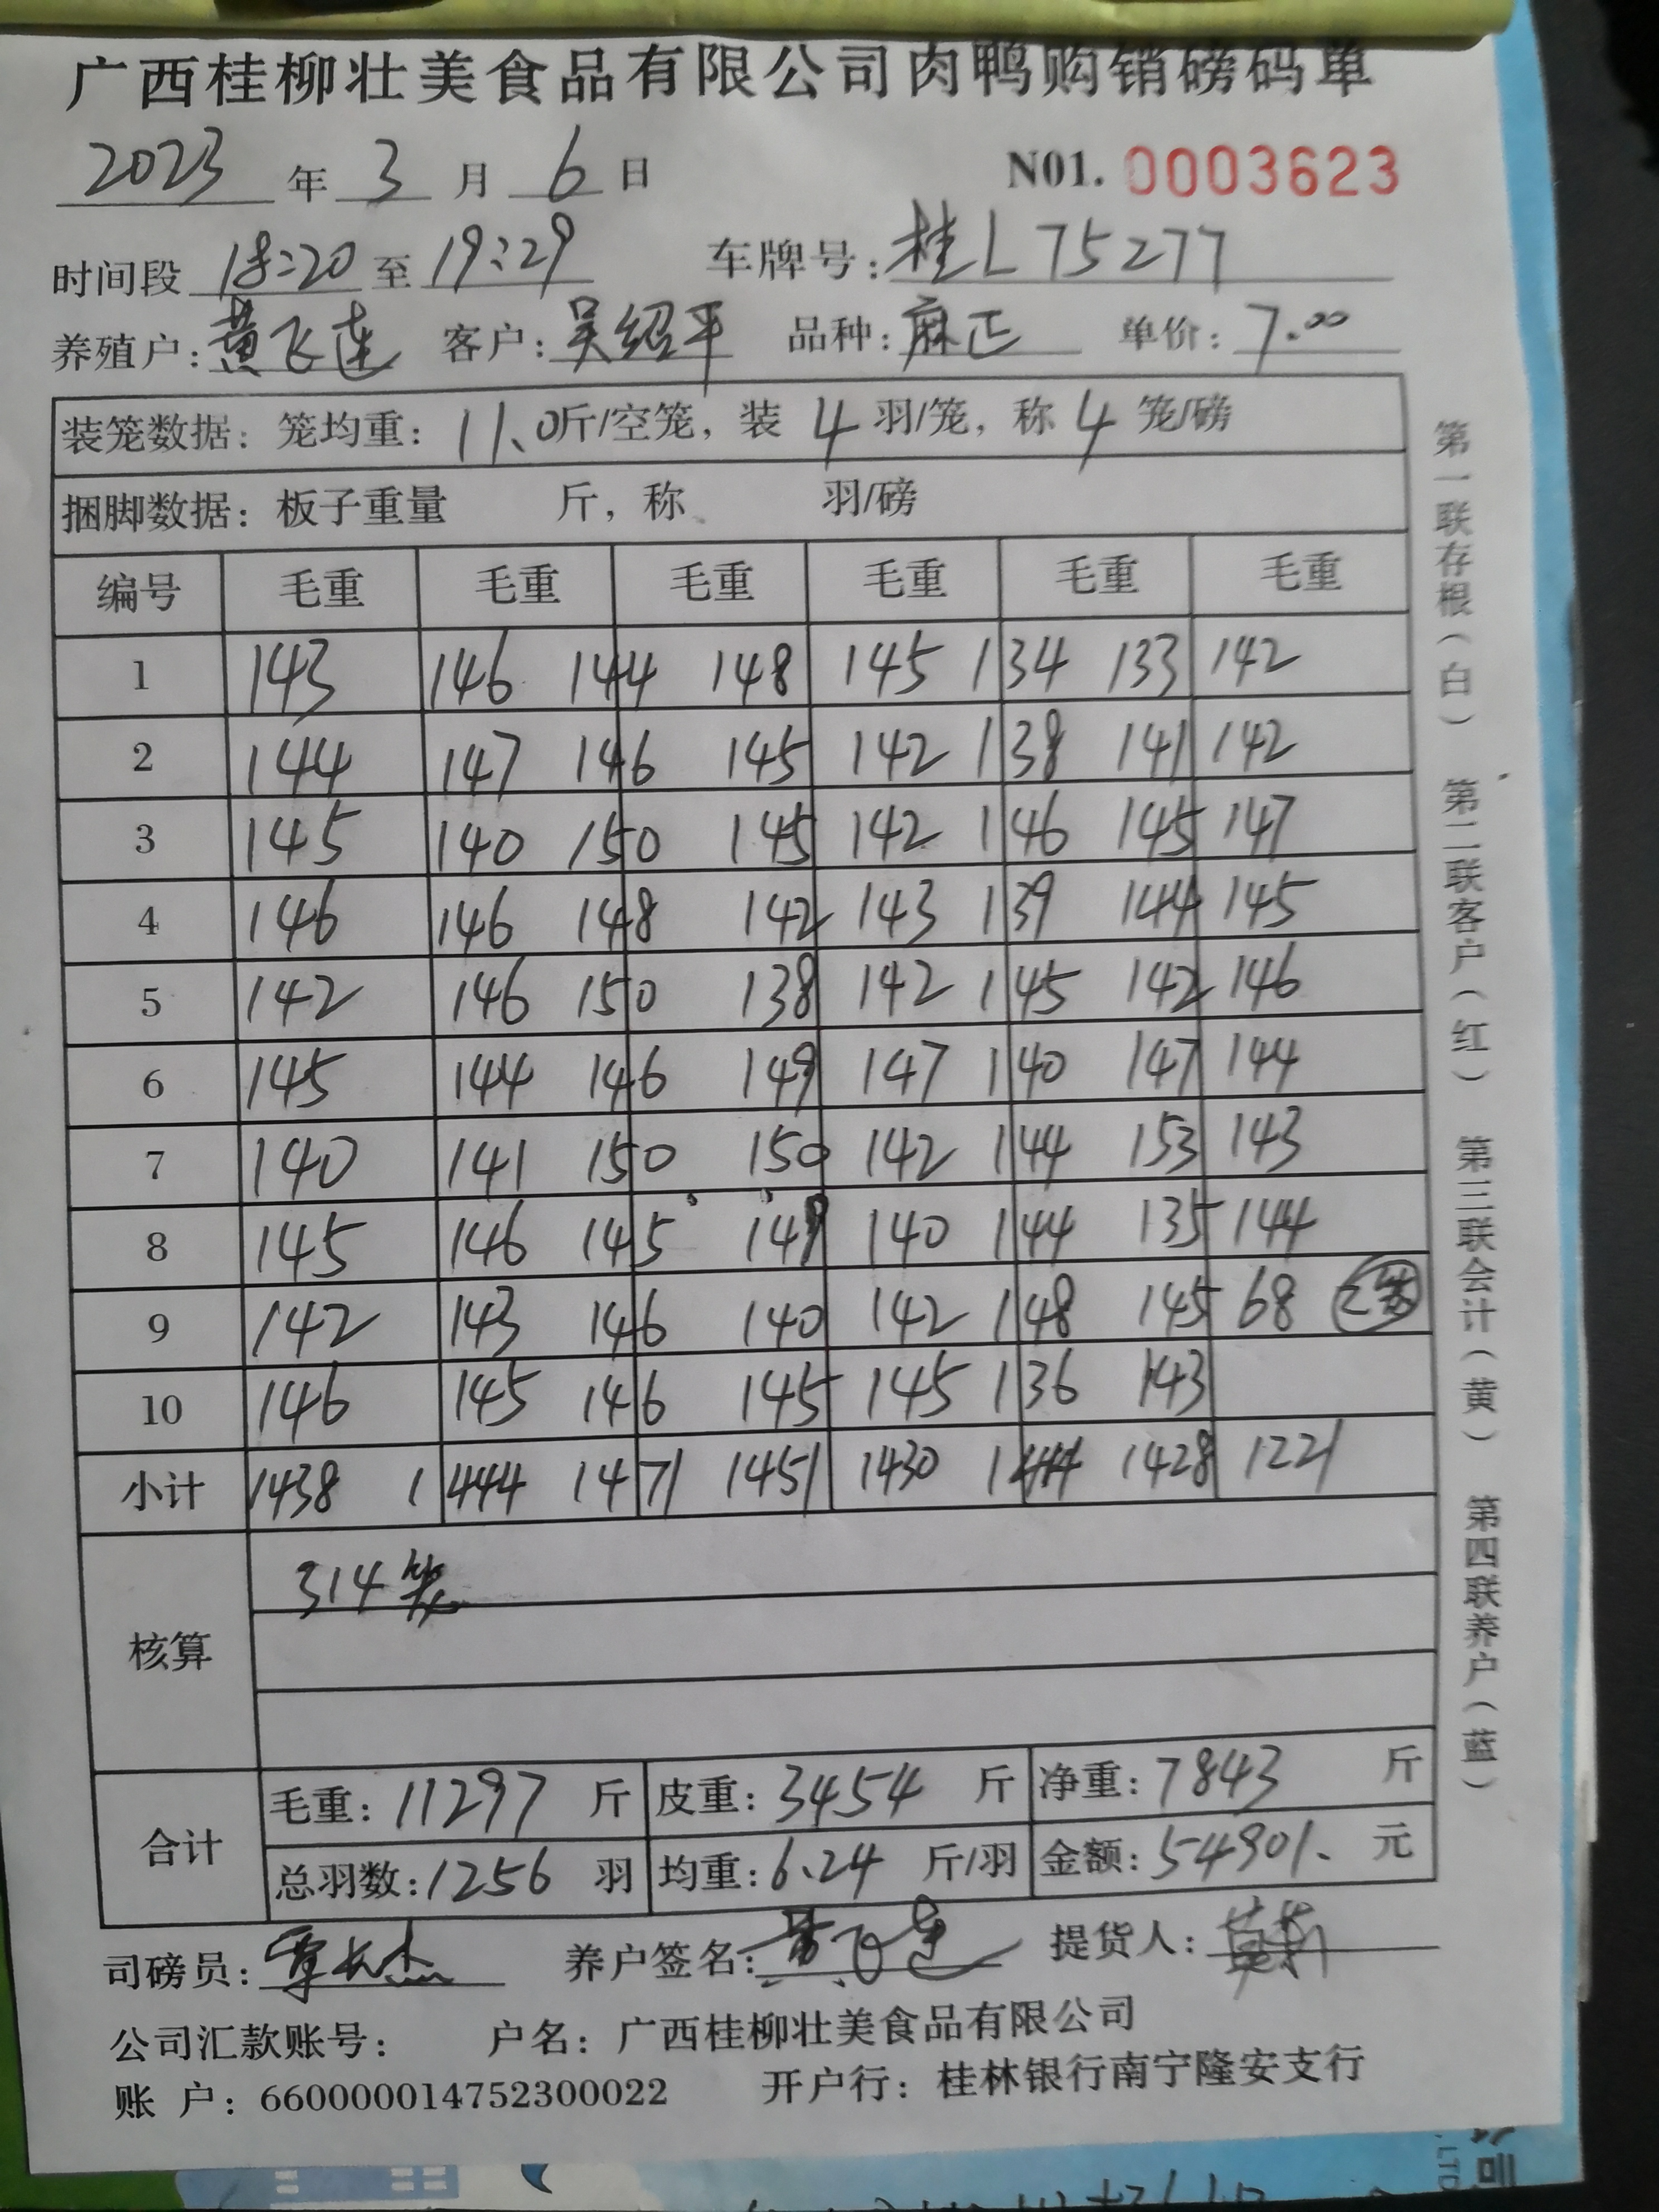 广西桂柳壮美食品有限公司肉鸭购销磅码单
2023 年 3 月 6 日 N01. 0003623
时间段 18:20 至 19:29 车牌号: 桂L75277
养殖户: 黄飞连 客户: 吴绍平 品种: 麻正 单价: 7.00
装笼数据: 笼均重: 11.0斤/空笼, 装 4 羽/笼, 称 4 笼/磅
捆脚数据: 板子重量 斤, 称 羽/磅
编号 毛重 毛重 毛重 毛重 毛重 毛重
1 143 146 144 148 145 134 133 142
2 144 147 146 145 142 138 141 142
3 145 140 150 145 142 146 145 147
4 146 146 148 142 143 139 144 145
5 142 146 150 138 142 145 142 146
6 145 144 146 149 147 140 147 144
7 140 141 150 150 142 144 153 143
8 145 146 145 149 140 144 135 144
9 142 143 146 140 142 148 145 68 2笼
10 146 145 146 145 145 136 143
小计 1438 1444 1471 1451 1430 1414 1428 1221
核算 314笼
合计 毛重: 11297 斤 皮重: 3454 斤 净重: 7843 斤
总羽数: 1256 羽 均重: 6.24 斤/羽 金额: 54901. 元
司磅员: 养户签名: 黄飞连 提货人:
公司汇款账号: 户名: 广西桂柳壮美食品有限公司
账 户: 660000014752300022 开户行: 桂林银行南宁隆安支行
第一联存根(白) 第二联客户(红) 第三联会计(黄) 第四联养户(蓝)